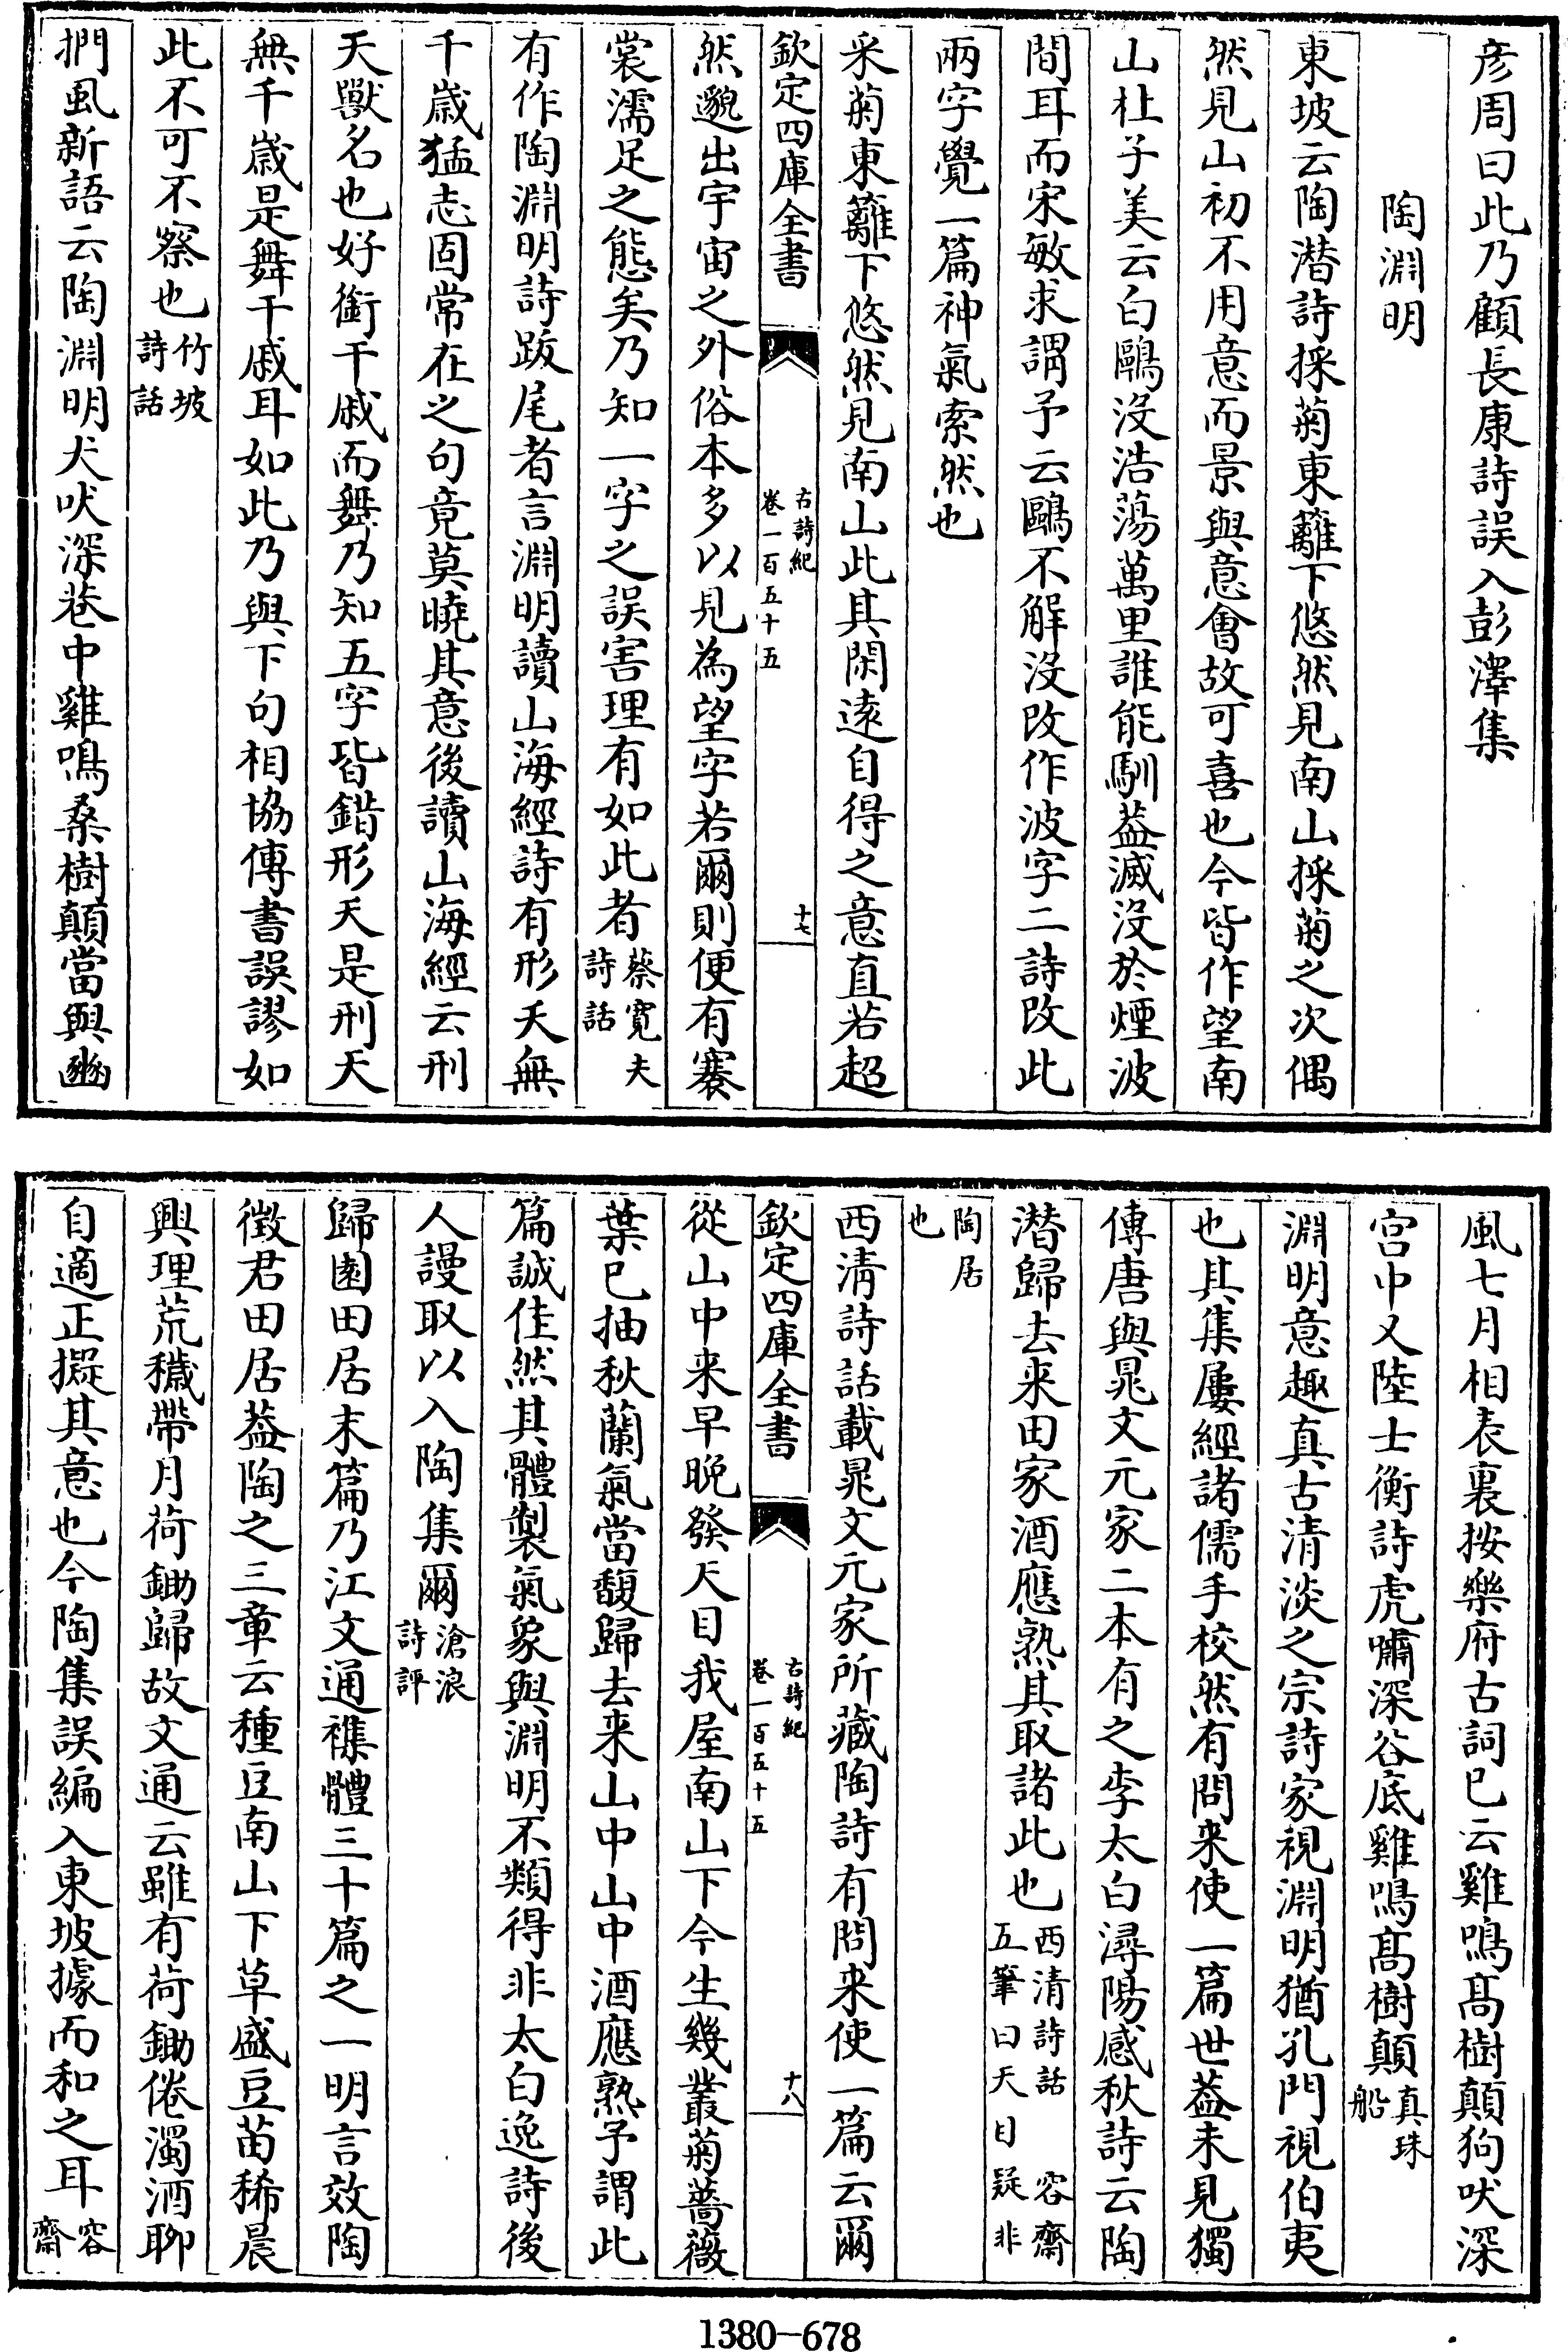 彦周曰此乃顧長康詩誤入彭澤集
陶淵明
東坡云陶潛詩採菊東籬下悠然見南山採菊之次偶
然見山初不用意而景與意會故可喜也今皆作望南
山杜子美云白鷗沒浩蕩萬里誰能馴葢滅沒於煙波
間耳而宋敏求謂予云鷗不解沒改作波字二詩改此
兩字覺一篇神氣索然也
采菊東籬下悠然見南山此其閑逺自得之意直若超
欽定四庫全書
古詩紀
卷一百五十五
十七
然邈出宇宙之外俗本多以見為望字若爾則便有褰
裳濡足之態矣乃知一字之誤害理有如此者蔡寛夫
詩話
有作陶淵明詩跋尾者言淵明讀山海經詩有形夭無
千歳猛志固常在之句竟莫曉其意後讀山海經云刑
天獸名也好銜干戚而舞乃知五字皆錯形夭是刑天
無千歳是舞干戚耳如此乃與下句相協傳書誤謬如
此不可不察也竹坡
詩話
捫虱新語云陶淵明犬吠深巷中雞鳴桑樹顛當與豳
風七月相表裏按樂府古詞已云雞鳴髙樹顛狗吠深
宫中又陸士衡詩虎嘯深谷底雞鳴髙樹顛真珠
船
淵明意趣真古清淡之宗詩家視淵明猶孔門視伯夷
也其集屢經諸儒手校然有問来使一篇世葢未見獨
傳唐與晁文元家二本有之李太白潯陽感秋詩云陶
潛歸去来田家酒應熟其取諸此也西清詩話 容齋
五筆曰天目疑非
陶居
也
西清詩話載晁文元家所藏陶詩有問来使一篇云爾
欽定四庫全書
古詩紀
卷一百五十五
十八
從山中来早晚發天目我屋南山下今生幾叢菊薔薇
葉已抽秋蘭氣當馥歸去来山中山中酒應熟予謂此
篇誠佳然其體製氣象與淵明不類得非太白逸詩後
人謾取以入陶集爾滄浪
詩評
歸園田居末篇乃江文通雜體三十篇之一明言效陶
徵君田居葢陶之三章云種豆南山下草盛豆苗稀晨
興理荒穢帶月荷鋤歸故文通云雖有荷鋤倦濁酒聊
自適正擬其意也今陶集誤編入東坡據而和之耳容
齋
1380—678